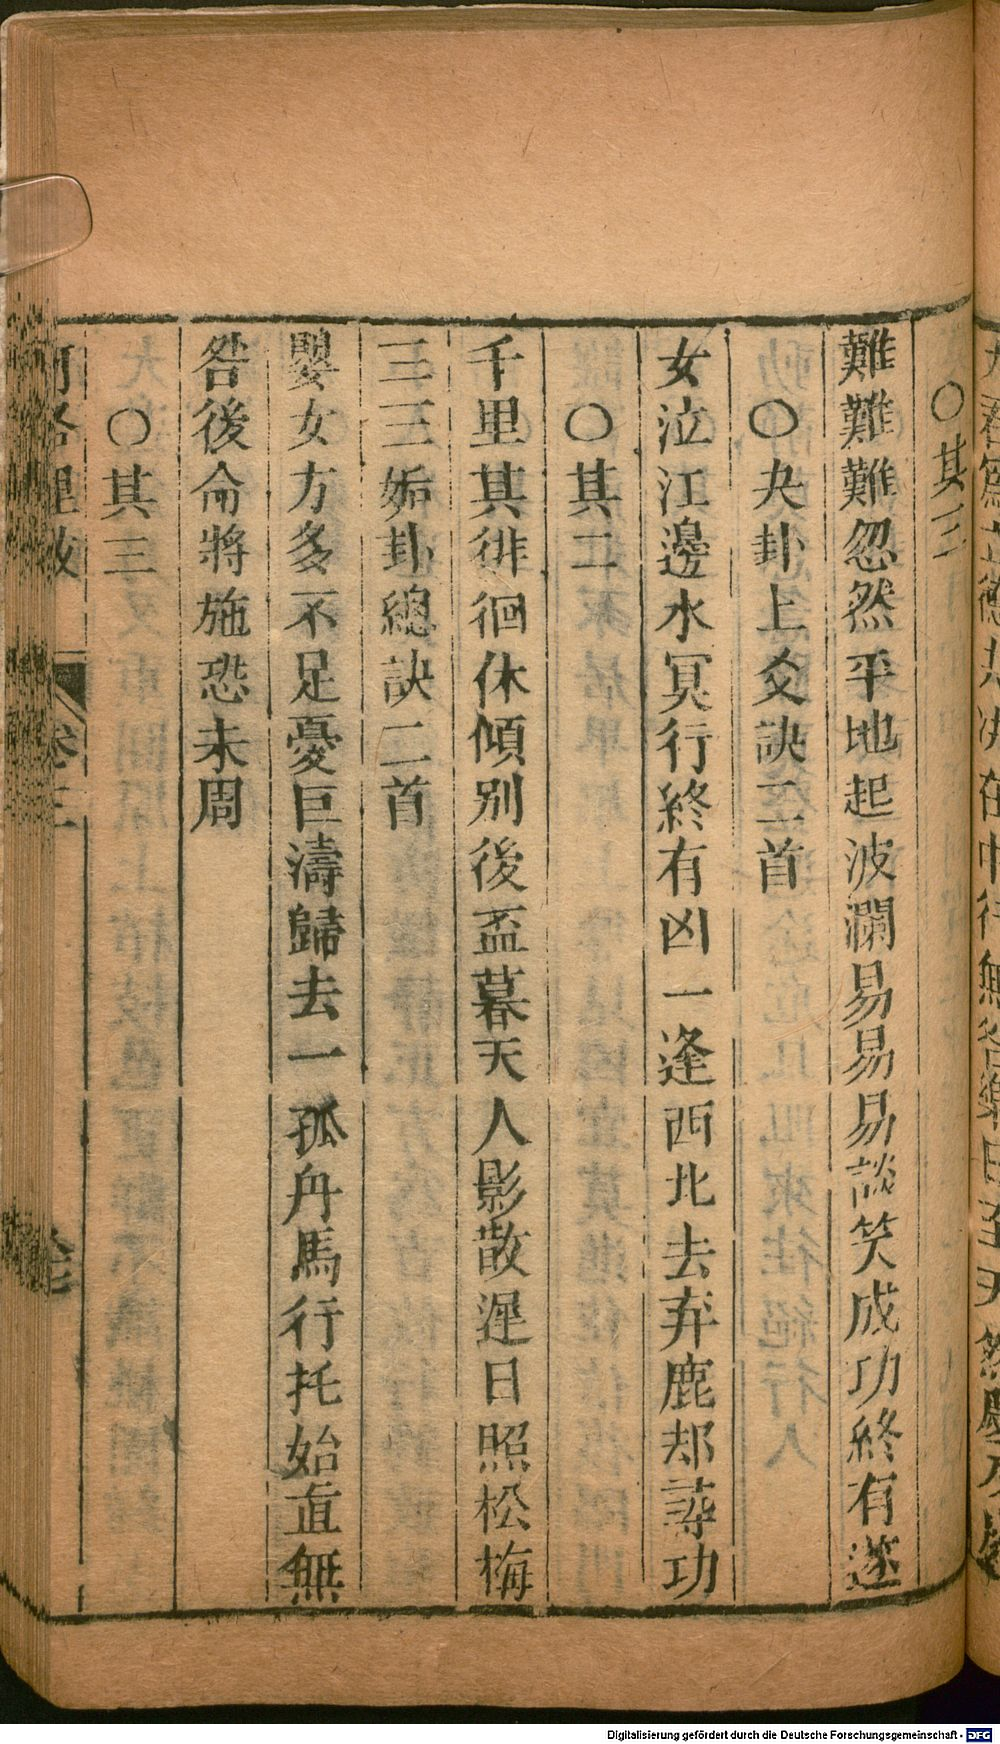 ○其三
難難難忽然平地起波瀾易易易談笑成功終有遂
○夬卦上爻訣二首
女泣江邊水冥行終有凶一逢西北去弃鹿却尋功
○其二
千里其徘徊休傾別後盃暮天人影散遲日照松梅
三三姤卦總訣二首
嬰女方多不足憂巨濤歸去一孤舟馬行托始直無
咎後侖將施恐未周
○其三
河洛理數 卷三
Digitalisierung gefördert durch die Deutsche Forschungsgemeinschaft - DFG